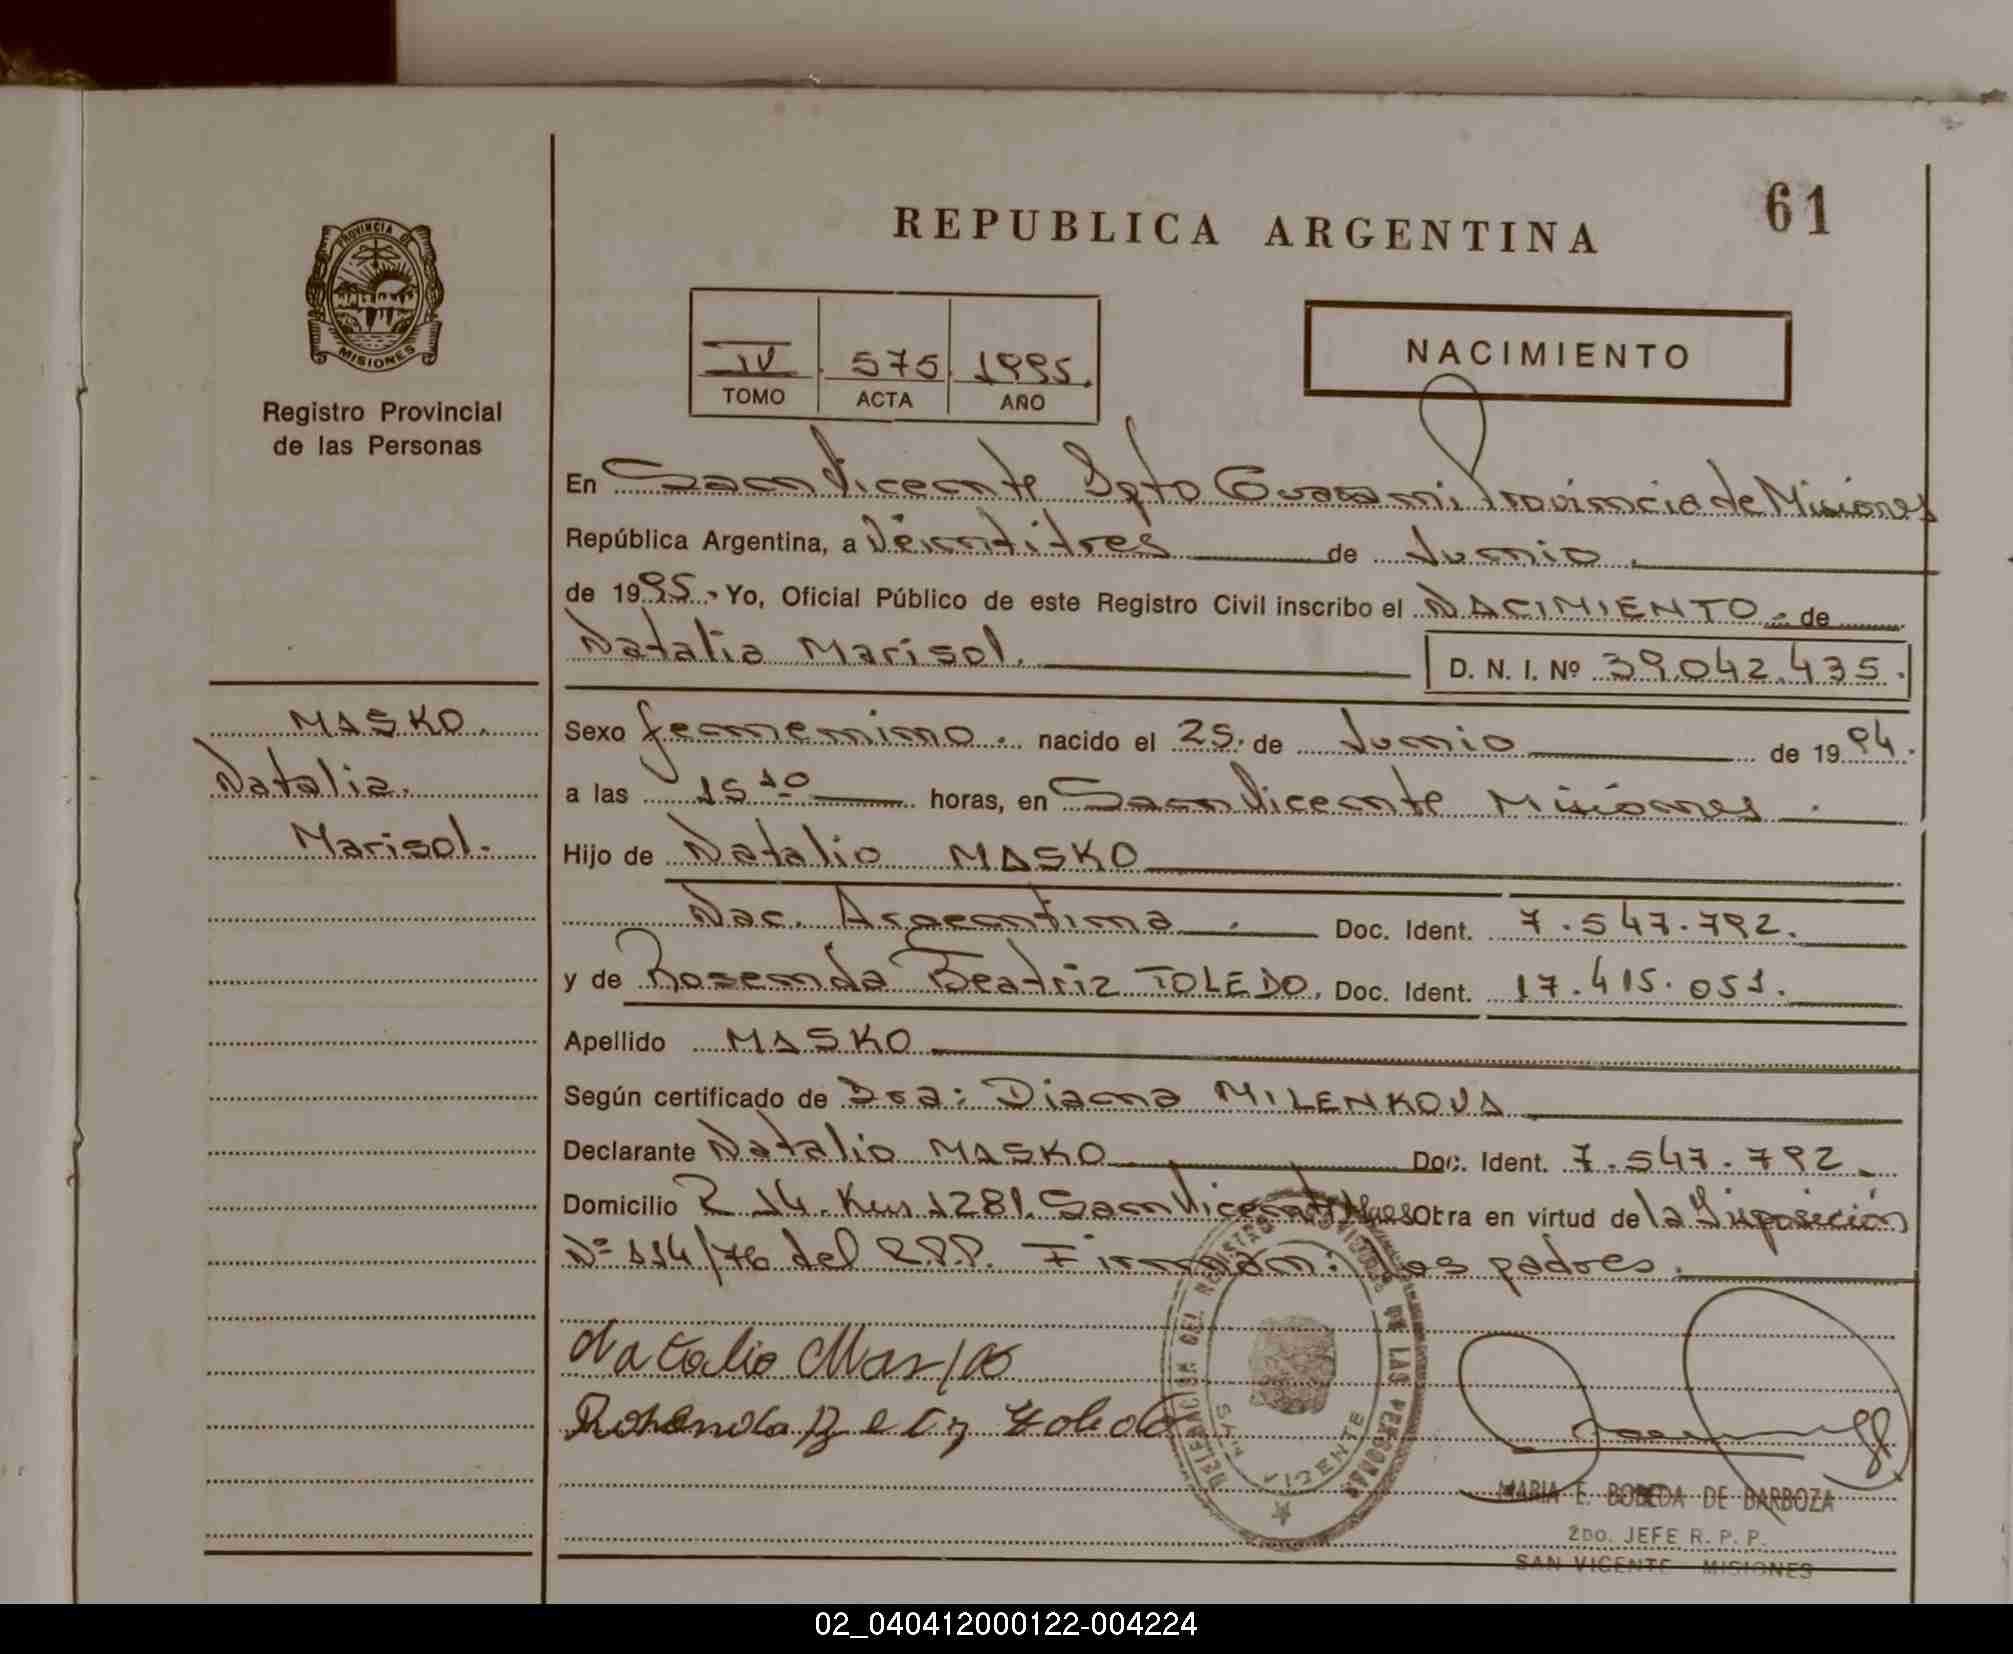 61
REPUBLICA ARGENTINA
PROVINCIA DE
MISIONES
Registro Provincial
de las Personas
NACIMIENTO
IV 575 1995.
TOMO ACTA AÑO
En San Vicente Dpto Guarani Provincia de Misiones
República Argentina, a Veintitres de Junio.
de 1995.- Yo, Oficial Público de este Registro Civil inscribo el NACIMIENTO.- de
Natalia Marisol. D. N. I. Nº 39.042.435.
MASKO.
Natalia.
Marisol.
Sexo femenino. nacido el 25. de Junio de 1994.
a las 15 10 horas, en San Vicente Misiones.
Hijo de Natalio MASKO
Nac. Argentina. Doc. Ident. 7.547.792.
y de Rosenda Beatriz TOLEDO. Doc. Ident. 17.415.051.
Apellido MASKO
Según certificado de Dra: Diana MILENKOVA
Declarante Natalio MASKO Doc. Ident. 7.547.792.
Domicilio R 14. Km 1281. San Vicente Mnes Obra en virtud de la Disposición
Nº 114/76 del R.P.P. Firman: los padres.
Natalio Masko
Rosenda Toledo
DELEGACION DEL REGISTRO DE LAS PERSONAS
SAN VICENTE
MARIA E. BOBEDA DE BARBOZA
2DO. JEFE R. P. P.
SAN VICENTE MISIONES
02_040412000122-004224